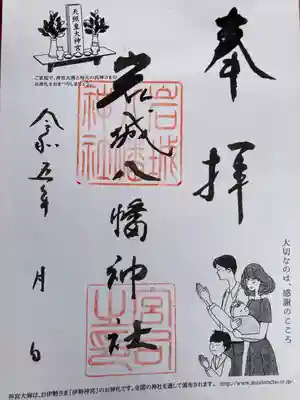 奉拝
岩城八幡神社
令和五年 月 日
岩城
八幡
神社
宮司
之印
天照皇大神宮
ご家庭で、神宮大麻と地元の氏神さまの
お神札をおまつりしましょう。
大切なのは、感謝のこころ
神宮大麻は、お伊勢さま「伊勢神宮」のお神札です。全国の神社を通して頒布されます。